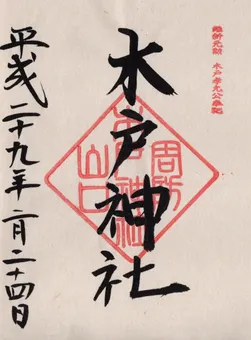 維新元勲 木戸孝允公奉祀
木戸神社
周防
山口
木戸神社
平成二十九年二月二十四日